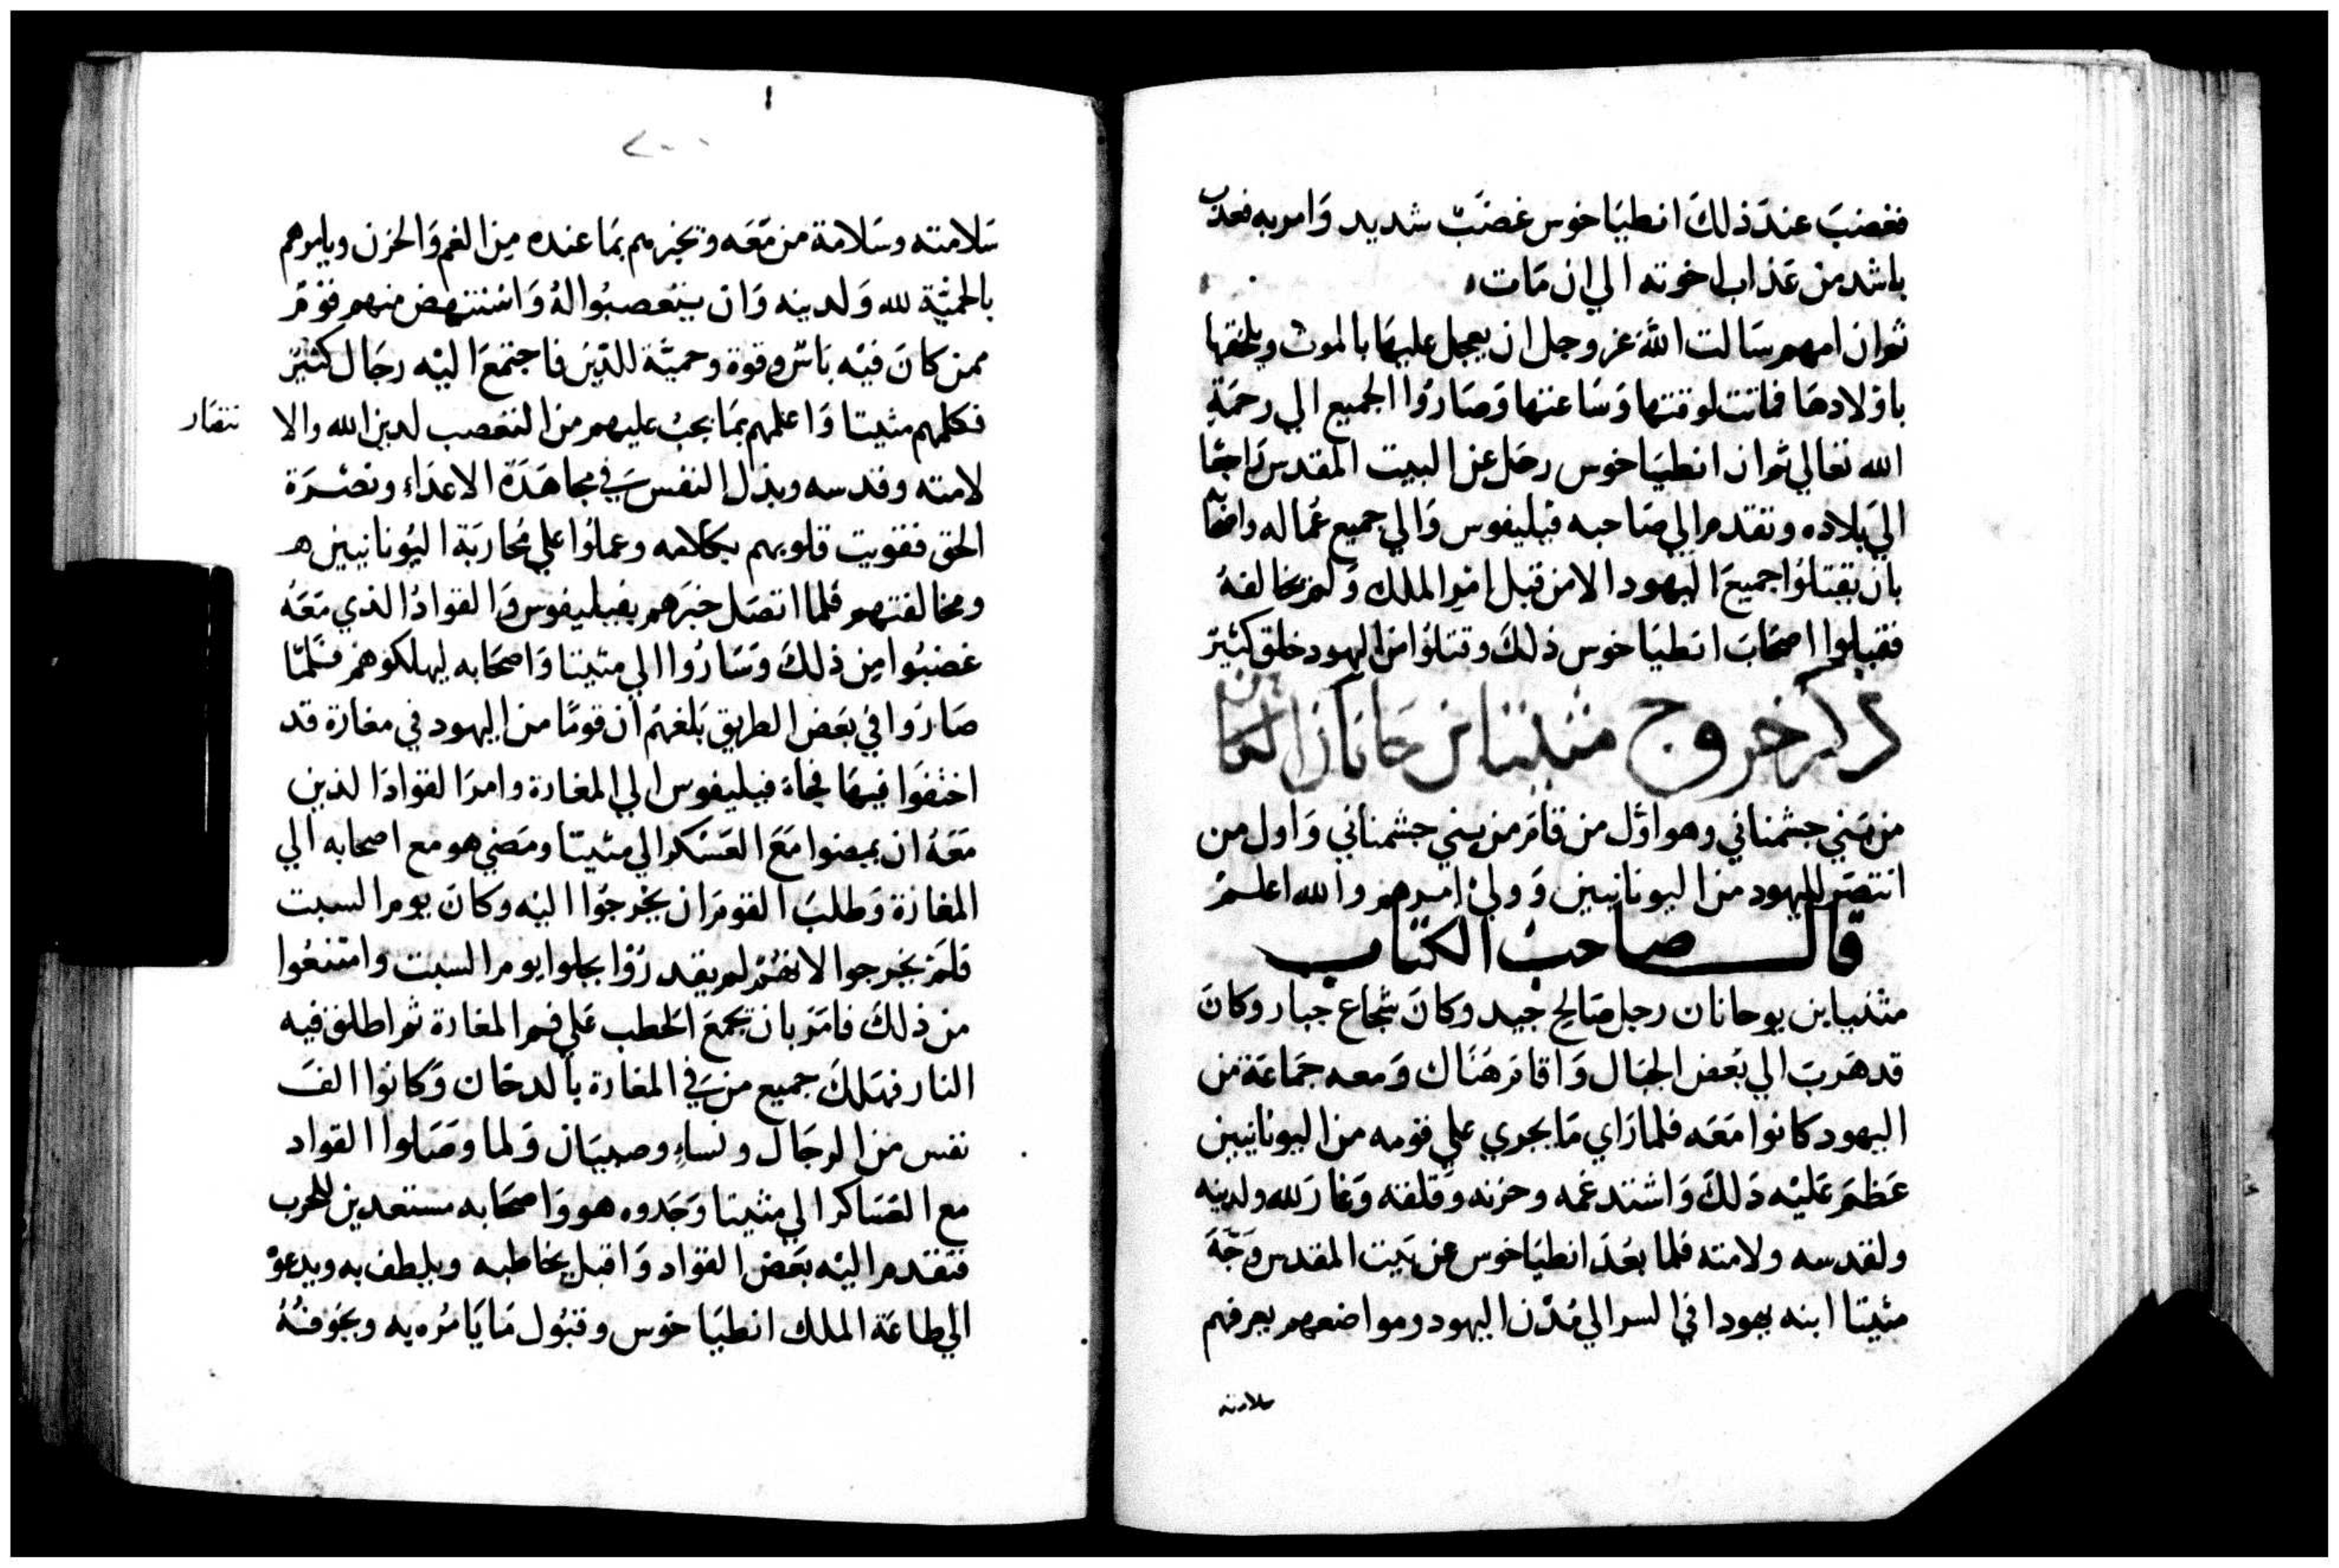 فغضبَ عندَ ذلكَ انطيَاخوس غضبْ شديد وَامر به فعذب
باشد من عَذاب اخوته الي ان مَات
ثم ان امهم سَالت اللهَ عز وجل ان يعجل عليهَا بالموت ويلحقها
باوْلادهَا فماتت لوقتها وَسَاعتها وَصَارُوا الجميع الي رحمَةِ
الله تعَالي ثم ان انطيَاخوس رحَل عن البيت المقدس رَاجعًا
الي بلاده وتقدم الي صَاحبه فيليفوس وَالي جميع عُماله واصحابه
بان يقتلوُا جميعَ اليهود الا من قبل امْر الملك وَلم يخالفهُ
فقبلوا اصحَابَ انطيَاخوس ذلكَ وقتلوُا من اليهود خلق كثيرْ
ذكر خروج متيتا بن حانان الكاهن
من بَني حشمناني وهو اوَّل من قامَ من بني حشمناني وَاول من
انتصَر لليهود من اليونانيين وَولي امرهم والله اعلمْ
قال صاحبْ الكتاب
متثيا بن يوحانان رجل صَالح جيد وكانَ شجاع جبار وكانَ
قد هَربَ الي بَعض الجبَال وَاقامَ هنَاك وَمعه جمَاعَة من
اليهود كانوا مَعَه فلما رَاي مَا يجري علي قوْمه من اليونانيين
عَظمَ عَليْه ذلكَ وَاشتد غمه وحزنه وَقلقه وَغارَ لله ولدينه
ولقدسه ولامته فلما بعَدَ انطيَاخوس عن بَيت المقدس وَجَّهَ
متيتا ابنه يهودا في السر الي مُدْن اليهود ومواضعهم يعرفهم
سلامته
سَلامته وسَلامة من مَّعَه وتخبرهم بمَا عنده مِن الغم وَالحزن ويامرهم
بالحميّة لله وَلدينه وَان يتعصبُوا لهُ وَاسْتنهض منهم قوْمْ
ممن كانَ فيْه بَاسْ وقوة وحميَّة للدِّين فاجتمعَ اليْه رجَال كثيْر
فكلمهم متيتا وَاعلمهم بمَا يجبْ عليهم من التعَصب لدين الله والا
نتصَار
لامته وقدسه وبذل النفسَ في مجاهَدَة الاعدَاء ونصْرَة
الحق فقويت قلوبهم بكلامه وعملوُا علي مُحَاربَة اليُونانيين
ومخالفتهم فلما اتصَل خبَرهم بفيليفوس وَالقوادُ الذي مَعَهُ
غضبُوا مِن ذلكَ وَسَارُوا الي متيتا وَاصحَابه ليهلكوهمْ فَلمّا
صَارُوا في بَعض الطريق بَلغهُم ان قومًا من اليهود في مغارة قد
اختفَوا فيهَا فجاءَ فيليفوس الي المغارة وامرَ القوادَ الذين
مَعَهُ ان يمضوا مَعَ العَسْكر الي متيتا ومَضي هو مع اصحابه الي
المغارَة وَطلبَ القومَ ان يخرجُوا اليْه وكانَ يوم السبت
فلمَ يخرجوا لانهُمْ لم يقدرُوْا يحلوا يوم السبت وامتنعُوا
من ذلكَ فامَرَ بان يجمعَ الحَطب عَلي فم المغارة ثم اطلق فيه
النار فهَلكَ جميع منَ في المغارة بالدخان وَكانوا الفَ
نفس من الرجَال ونساءِ وصبيَان وَلما وصَلوا القواد
مع العَسَاكر الي متيتا وَجَدوه هو وَاصحَابه مستعدين للحرب
فتقدم اليْه بَعَضْ القواد وَاقبل يخاطبه ويلطف به ويدعوْ
الي طاعَة الملك انطيَاخوس وقبُول مَا يَامُره به ويخوفهُ